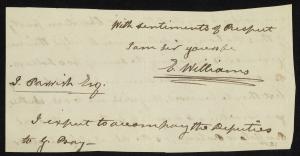 With sentiments of Respect
I am sir yours &c
E. Williams
J. Parrish Esq.
I expect to accompany the Deputies
to G. Bay—